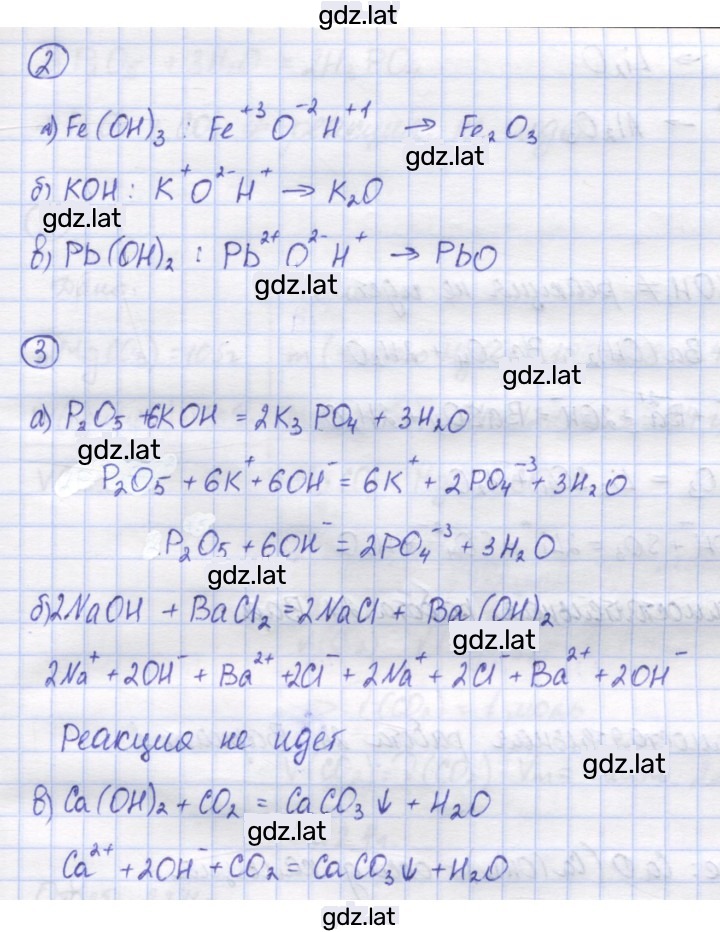 gdz.lat
2
а) Fe(OH)₃ : Fe⁺³ O⁻² H⁺¹ → Fe₂O₃
gdz.lat
б) KOH : K⁺O²⁻H⁺ → K₂O
gdz.lat
в) Pb(OH)₂ : Pb²⁺ O²⁻ H⁺ → PbO
gdz.lat
3
gdz.lat
а) P₂O₅ + 6KOH = 2K₃PO₄ + 3H₂O
gdz.lat
P₂O₅ + 6K⁺ + 6OH⁻ = 6K⁺ + 2PO₄⁻³ + 3H₂O
P₂O₅ + 6OH⁻ = 2PO₄⁻³ + 3H₂O
gdz.lat
б) 2NaOH + BaCl₂ = 2NaCl + Ba(OH)₂
gdz.lat
2Na⁺ + 2OH⁻ + Ba²⁺ + 2Cl⁻ + 2Na⁺ + 2Cl⁻ + Ba²⁺ + 2OH⁻
Реакция не идет
gdz.lat
в) Ca(OH)₂ + CO₂ = CaCO₃↓ + H₂O
gdz.lat
Ca²⁺ + 2OH⁻ + CO₂ = CaCO₃↓ + H₂O
gdz.lat